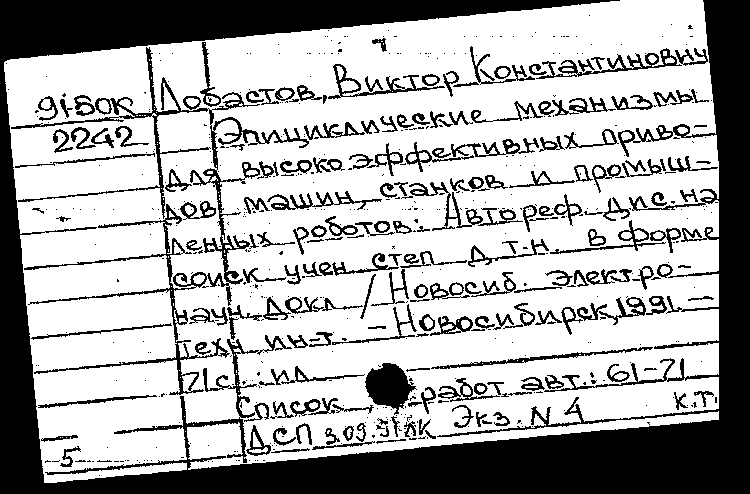 91-50к Лобастов, Виктор Константинович
2242 Эпициклические механизмы
для высокоэффективных приво-
дов машин, станков и промыш-
ленных роботов: Автореф. дис. на
соиск учен степ д.т.н. в форме
науч. докл / Новосиб. электро-
техн ин-т. - Новосибирск, 1991. -
71 с. : ил
Список работ авт.: 61-71
ДСП 3.09.91 ЛК Экз. N 4 К.Т.
5